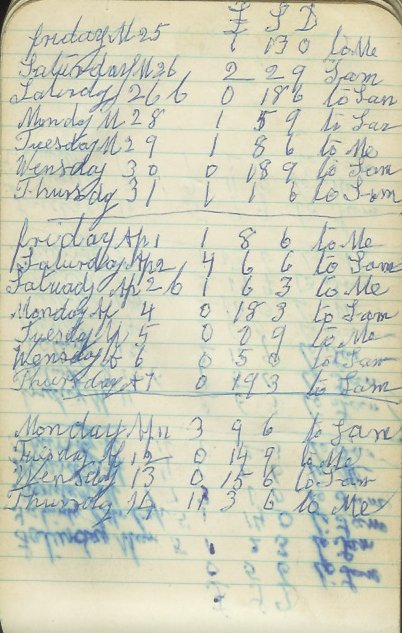 £ S D
friday M 25 1 13 0 to Me
Saturday M 26 2 2 9 Sam
Saturdy 26 6 0 18 6 to Sam
Monday M 28 1 5 9 to Sar
Tuesday M 29 1 8 6 to Me
Wensday 30 0 18 9 to Sam
Thursdy 31 1 1 6 to Sam
friday Ap 1 1 8 6 to Me
Saturday Ap 2 4 6 6 to Sam
Satuady Ap 2 6 1 6 3 to Me
Monday A 4 0 18 3 to Sam
Tuesday A 5 0 9 to Me
Wensday 6 0 5 0 to Sar
Thursday A 7 0 19 3 to Sam
Monday Ap 11 3 9 6 to Sam
Tuesday A 12 0 14 9 to Me
Wensday 13 0 15 6 to Sam
Thursdy 14 3 6 to Me